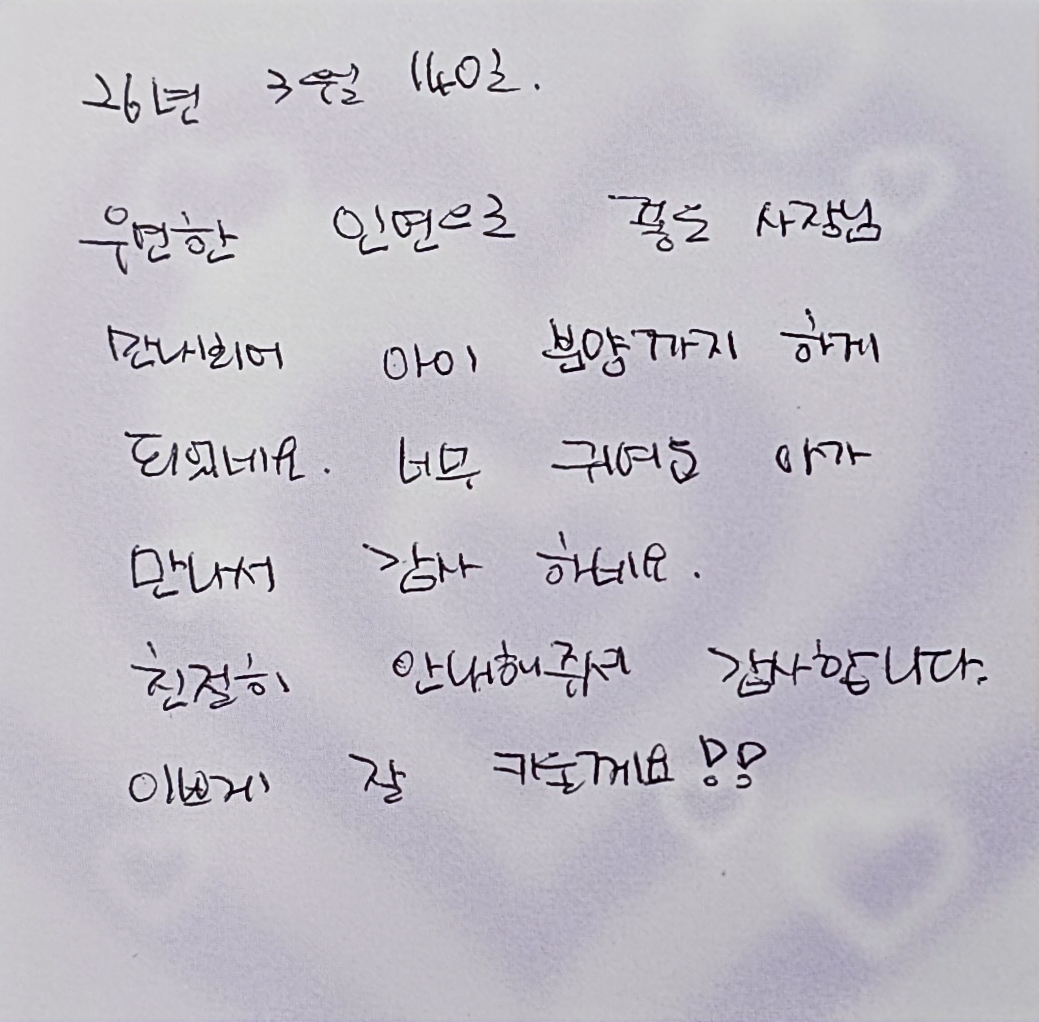 26년 3월 14일.
우연한 인연으로 좋은 사장님
만나되어 아이 분양까지 하게
되었네요. 너무 귀여운 아가
만나서 감사 하네요.
친절히 안내해주셔서 감사합니다.
이쁘게 잘 키울게요!!